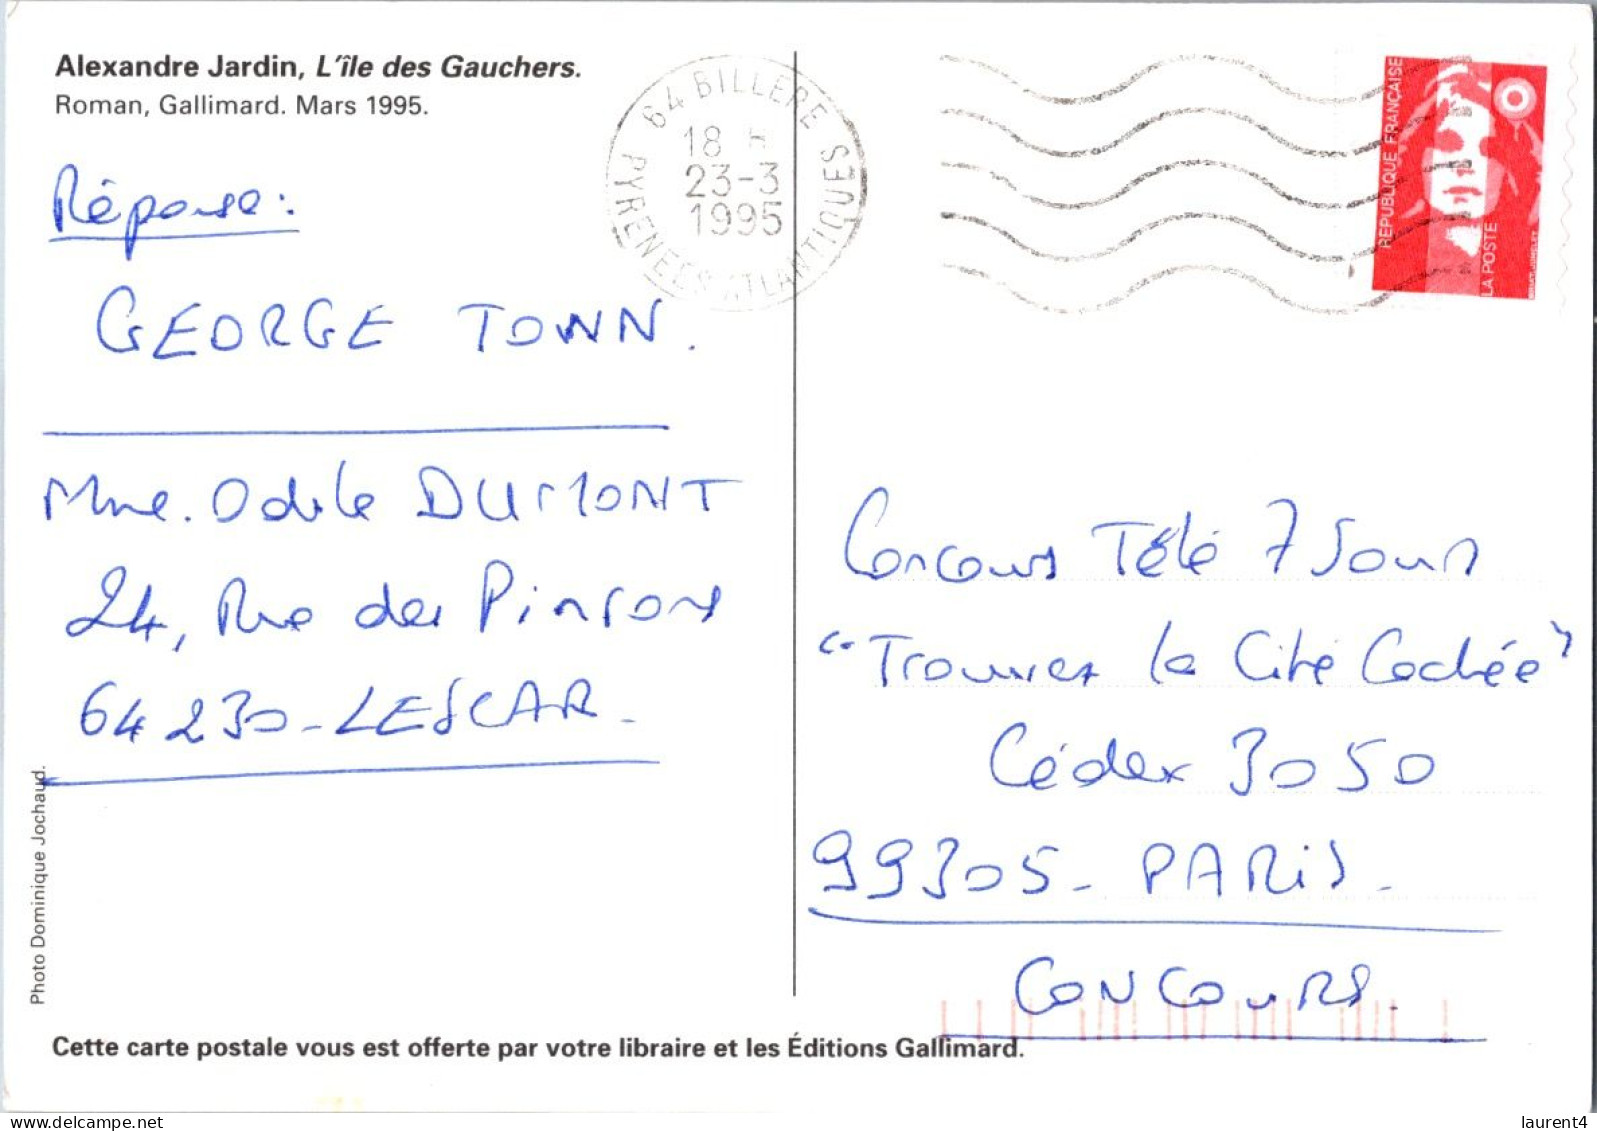 Alexandre Jardin, L'île des Gauchers.
Roman, Gallimard. Mars 1995.
64 BILLERE
18 H
23-3
1995
PYRENEES ATLANTIQUES
REPUBLIQUE FRANÇAISE
LA POSTE
Réponse:
GEORGE TOWN.
Mme. Odile DUMONT
24, Rue des Pinsons
64230-LESCAR-
Concours Télé 7 Jours
"Trouvez la Cité Cachée"
Cédex 3050
99305- PARIS-
CONCOURS.
Photo Dominique Jochaud.
Cette carte postale vous est offerte par votre libraire et les Éditions Gallimard.
laurent4